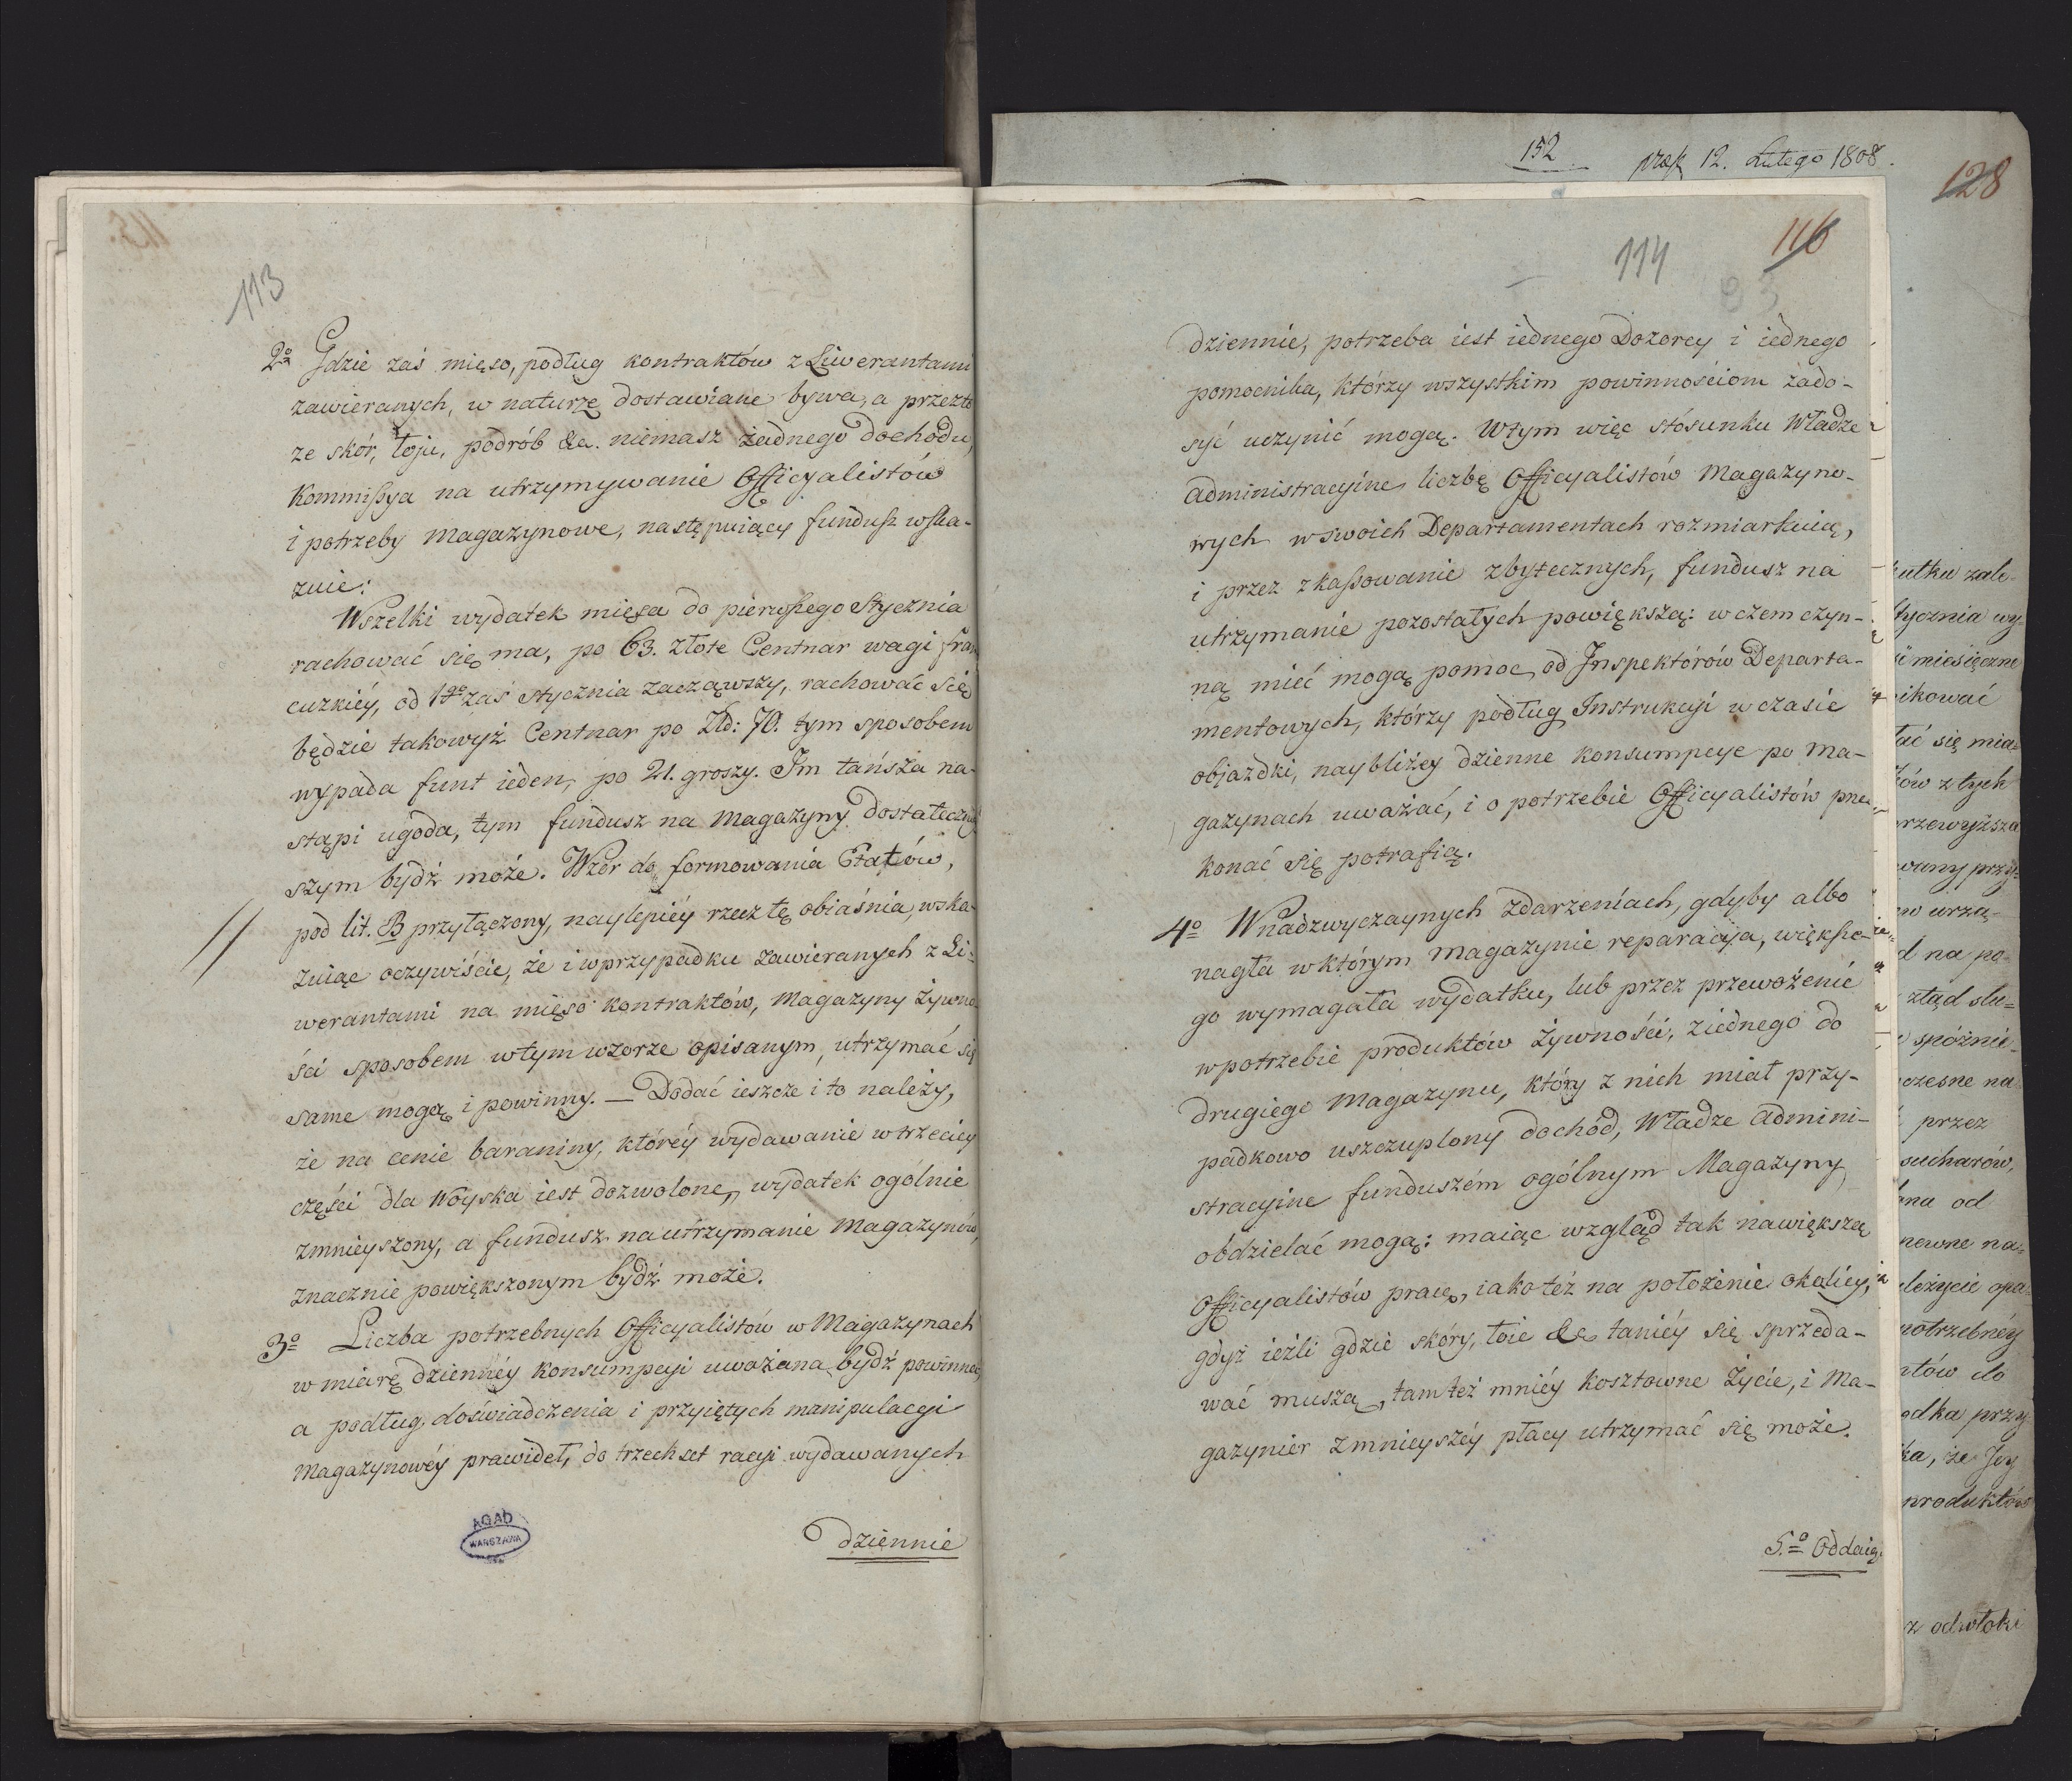 113
2º Gdzie zaś mięso, podług kontraktów z Liwerantami
zawieranych, w naturze dostawiane bywa, a przezto
ze skór, łoju, podrób &a. niemasz żadnego dochodu,
Kommissya na utrzymywanie Officyalistów
i potrzeby magazynowe, następuiący fundusz wska-
zuie:
Wszelki wydatek mięsa do pierwszego Stycznia
rachować się ma, po 63. złote Centnar wagi fran
cuzkiéy, od 1go zaś stycznia zacząwszy, rachować się
będzie takowyż Centnar po Złd: 70. tym sposobem
wypada funt ieden, po 21. groszy. Im tańsza na-
stąpi ugoda, tym fundusz na magazyny dostateczniéy
szym bydź może. Wzór do formowania Etatów,
pod lit. B przyłączony, naylepiéy rzecz tę obiaśnia, wska-
zuiąc oczywiście, że i w przypadku zawieranych z Li-
werantami na mięso kontraktów, Magazyny żywno
ści sposobem w tym wzorze opisanym, utrzymać się
same mogą i powinny. — Dodać ieszcze i to należy,
że na cenie baraniny, któréy wydawanie w trzeciey
części dla Woyska iest dozwolone, wydatek ogólnie
zmnieyszony, a fundusz na utrzymanie Magazynów,
znacznie powiększonym bydź może.
3º Liczba potrzebnych Officyalistów w Magazynach
w miarę dziennéy konsumpcyi uważana bydź powinna,
a podług doświadczenia i przyiętych manipulacyi
Magazynowéy prawideł, do trzechset racyi wydawanych
AGAD
WARSZAWA
dziennie
152 12. Lutego 1808.
128
116
114
dziennie, potrzeba iest iednego Dozorcy i iednego
pomocnika, którzy wszystkim powinnościom zado-
syć uczynić mogą. W tym więc stósunku Władze
administracyine liczbę Officyalistów Magazyno-
wych w swoich Departamentach rozmiarkuią,
i przez zkassowanie zbytecznych, fundusz na
utrzymanie pozostałych powiększą: w czem czyn-
ną mieć mogą pomoc od Inspektórów Departa-
mentowych, którzy podług Instrukcyi w czasie
objazdki, naybliżey dzienne konsumpcye po ma-
gazynach uważać, i o potrzebie Officyalistów prze-
konać się potrafią.
4º W nadzwyczaynych zdarzeniach, gdyby albo
nagła w którym magazynie reparacija, większe-
go wymagała wydatku, lub przez przewożenie
w potrzebie produktów żywności, z iednego do
drugiego magazynu, który z nich miał przy-
padkowo uszczuplony dochód, Władze admini-
stracyine funduszém ogólnym Magazyny
obdzielać mogą: maiąc wzgląd tak nawiększą
Officyalistów pracę, iako też na położenie okolicy,
gdyż ieżli gdzie skóry, łoie &c taniéy się sprzeda-
wać muszą, tam też mniéy kosztowne życie, i Ma-
gazynier zmnieyszéy płacy utrzymać się może.
5.º Oddaią
tycznia wy-
miesięczne
ikować
się mia-
z tych
rzewyższa
urzą-
na po-
ztąd słu-
spóźnie-
czesne na
przez
sucharów,
od
potrzebnéy
do
przy
że Jey
produktów
odwłoki